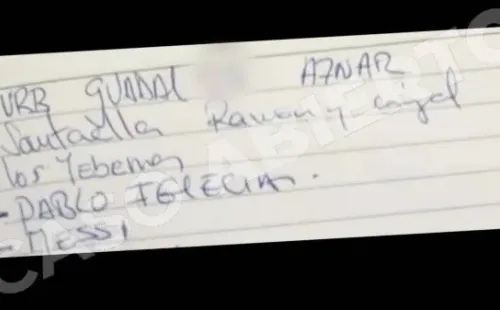 URB GUADAL AZNAR
Santaella Ramon y Cajal
los Yebenes
- PABLO IGLECIAS.
- MESSI
CASO ABIERTO